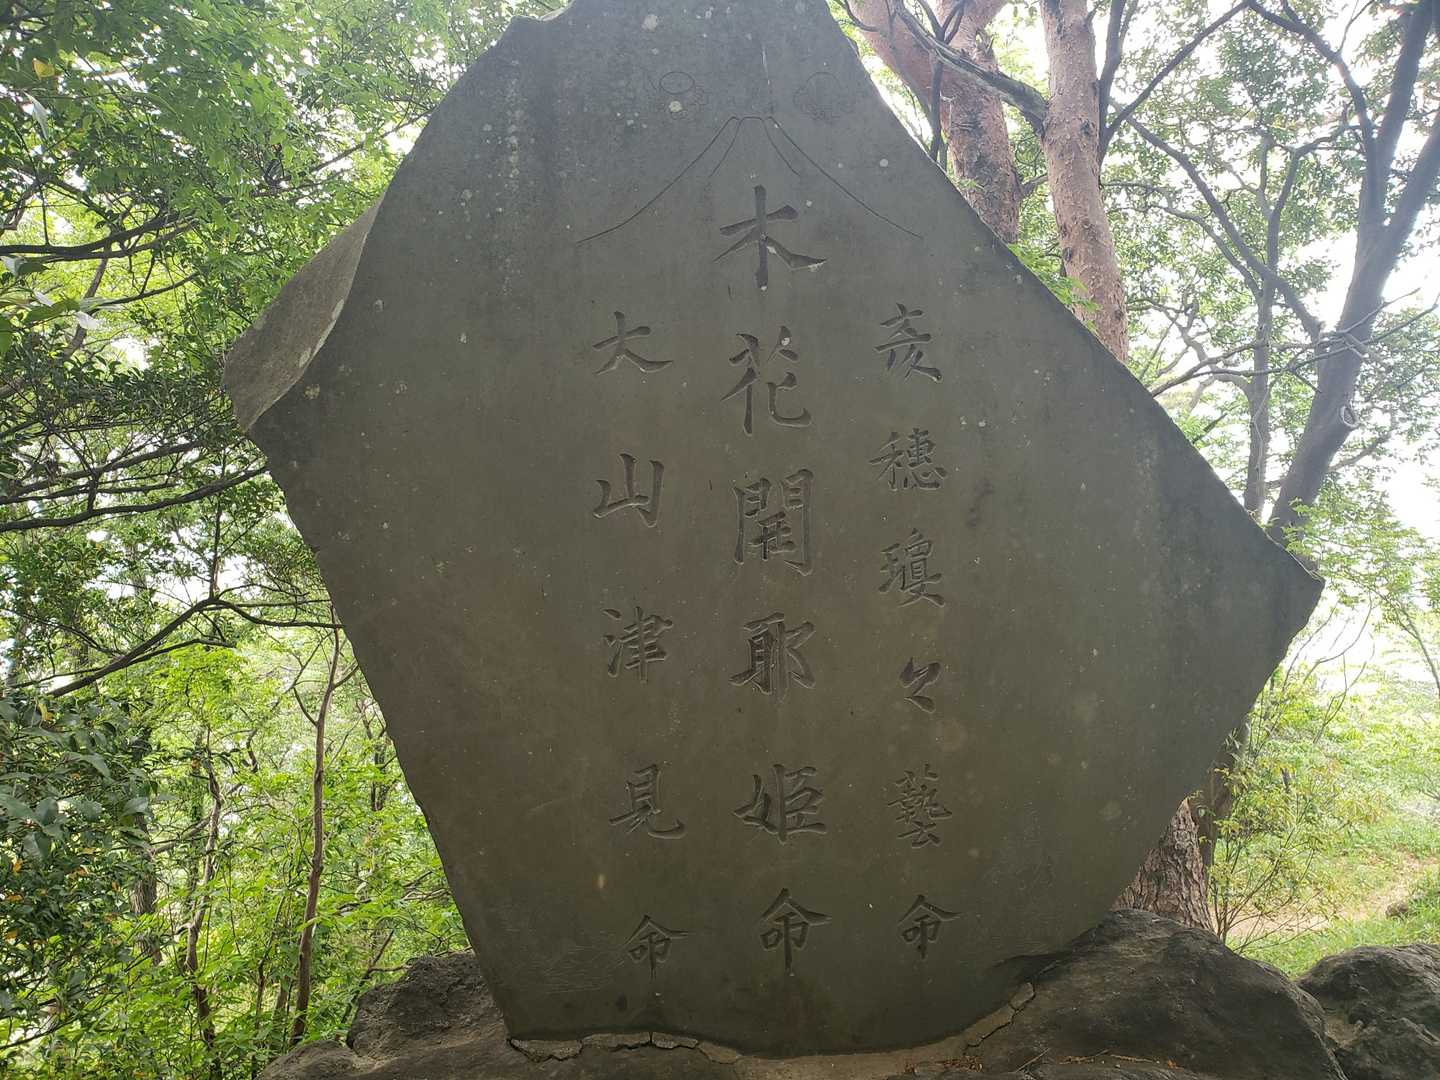 彦穗瓊々藝命
木花開耶姫命
大山津見命